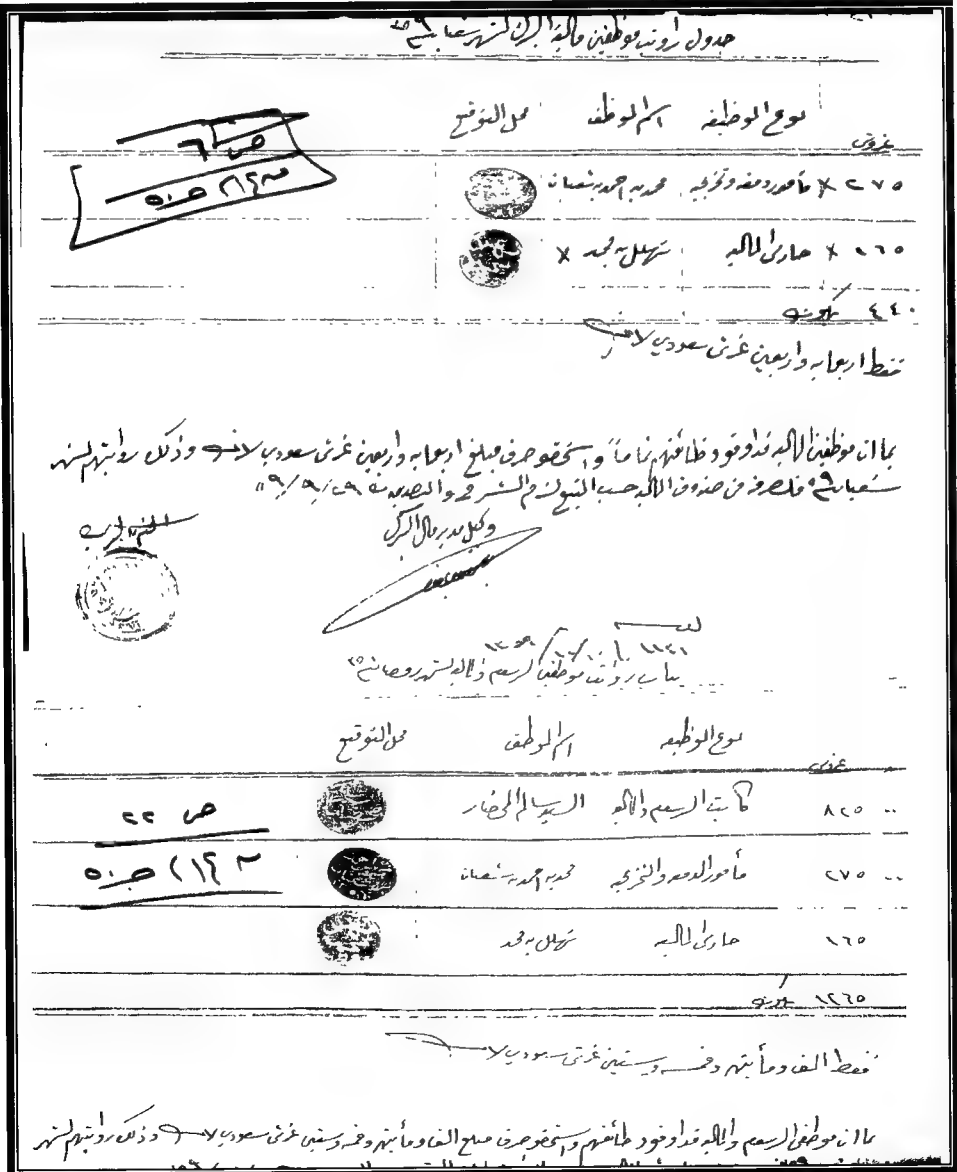 جدول رواتب موظفين مالية البرك لشهر شعبان
نوع الوظيفه اسم الموظف محل التوقيع
غروش
ص ٦
٢٧٥ × مأمور دمغه وتخريجيه محمد بن احمد بن شعبان
١٦٥ × حارس الماليه تهلل بن محمد ×
٤٤٠ يكون
فقط اربعمايه واربعين غرش سعودي لاغير
بما ان موظفين الماليه قد اوفوا وظائفهم تماماً واستحقو صرف مبلغ اربعمايه واربعين غرش سعودي لاغير وذلك رواتبهم لشهر
شعبان فلصرفه من صندوق الماليه حسب المتبع لزم الشرح والتصديق ٢٩/٩/٥٩
وكيل مدير مال البرك
١١٢١
بيان رواتب موظفين الرسوم والماليه لشهر رمضان
نوع الوظيفه اسم الموظف محل التوقيع
غروش
٨٢٥ كاتب الرسوم والماليه السيد سالم المحضار
ص ٢٢
٢٧٥ مأمور الدمغه والتخريجيه محمد بن احمد بن شعبان
١٦٥ حارس الماليه تهلل بن محمد
١٢٦٥ يكون
فقط الف ومأيتين وخمسه وستين غرش سعودي لاغير
بما ان موظفين الرسوم والماليه قد اوفوا وظائفهم واستحقو صرف مبلغ الف ومأيتين وخمسه وستين غرش سعودي لاغير وذلك رواتبهم لشهر